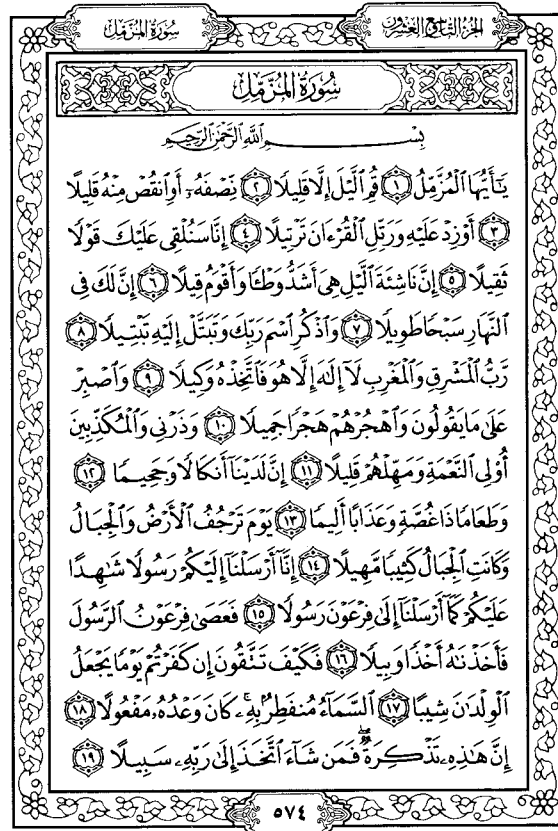 الجزء التاسع والعشرون
سورة المزمل
سُورَةُ المُزَّمِّلِ
بِسْمِ اللَّهِ الرَّحْمَٰنِ الرَّحِيمِ
يَٰٓأَيُّهَا ٱلْمُزَّمِّلُ ١ قُمِ ٱلَّيْلَ إِلَّا قَلِيلًا ٢ نِّصْفَهُۥٓ أَوِ ٱنقُصْ مِنْهُ قَلِيلًا
٣ أَوْ زِدْ عَلَيْهِ وَرَتِّلِ ٱلْقُرْءَانَ تَرْتِيلًا ٤ إِنَّا سَنُلْقِى عَلَيْكَ قَوْلًا
ثَقِيلًا ٥ إِنَّ نَاشِئَةَ ٱلَّيْلِ هِىَ أَشَدُّ وَطْـًٔا وَأَقْوَمُ قِيلًا ٦ إِنَّ لَكَ فِى
ٱلنَّهَارِ سَبْحًا طَوِيلًا ٧ وَٱذْكُرِ ٱسْمَ رَبِّكَ وَتَبَتَّلْ إِلَيْهِ تَبْتِيلًا ٨
رَّبُّ ٱلْمَشْرِقِ وَٱلْمَغْرِبِ لَآ إِلَٰهَ إِلَّا هُوَ فَٱتَّخِذْهُ وَكِيلًا ٩ وَٱصْبِرْ
عَلَىٰ مَا يَقُولُونَ وَٱهْجُرْهُمْ هَجْرًا جَمِيلًا ١٠ وَذَرْنِى وَٱلْمُكَذِّبِينَ
أُو۟لِى ٱلنَّعْمَةِ وَمَهِّلْهُمْ قَلِيلًا ١١ إِنَّ لَدَيْنَآ أَنكَالًا وَجَحِيمًا ١٢
وَطَعَامًا ذَا غُصَّةٍ وَعَذَابًا أَلِيمًا ١٣ يَوْمَ تَرْجُفُ ٱلْأَرْضُ وَٱلْجِبَالُ
وَكَانَتِ ٱلْجِبَالُ كَثِيبًا مَّهِيلًا ١٤ إِنَّآ أَرْسَلْنَآ إِلَيْكُمْ رَسُولًا شَٰهِدًا
عَلَيْكُمْ كَمَآ أَرْسَلْنَآ إِلَىٰ فِرْعَوْنَ رَسُولًا ١٥ فَعَصَىٰ فِرْعَوْنُ ٱلرَّسُولَ
فَأَخَذْنَٰهُ أَخْذًا وَبِيلًا ١٦ فَكَيْفَ تَتَّقُونَ إِن كَفَرْتُمْ يَوْمًا يَجْعَلُ
ٱلْوِلْدَٰنَ شِيبًا ١٧ ٱلسَّمَآءُ مُنفَطِرٌۢ بِهِۦ ۚ كَانَ وَعْدُهُۥ مَفْعُولًا ١٨
إِنَّ هَٰذِهِۦ تَذْكِرَةٌ ۖ فَمَن شَآءَ ٱتَّخَذَ إِلَىٰ رَبِّهِۦ سَبِيلًا ١٩
٥٧٤